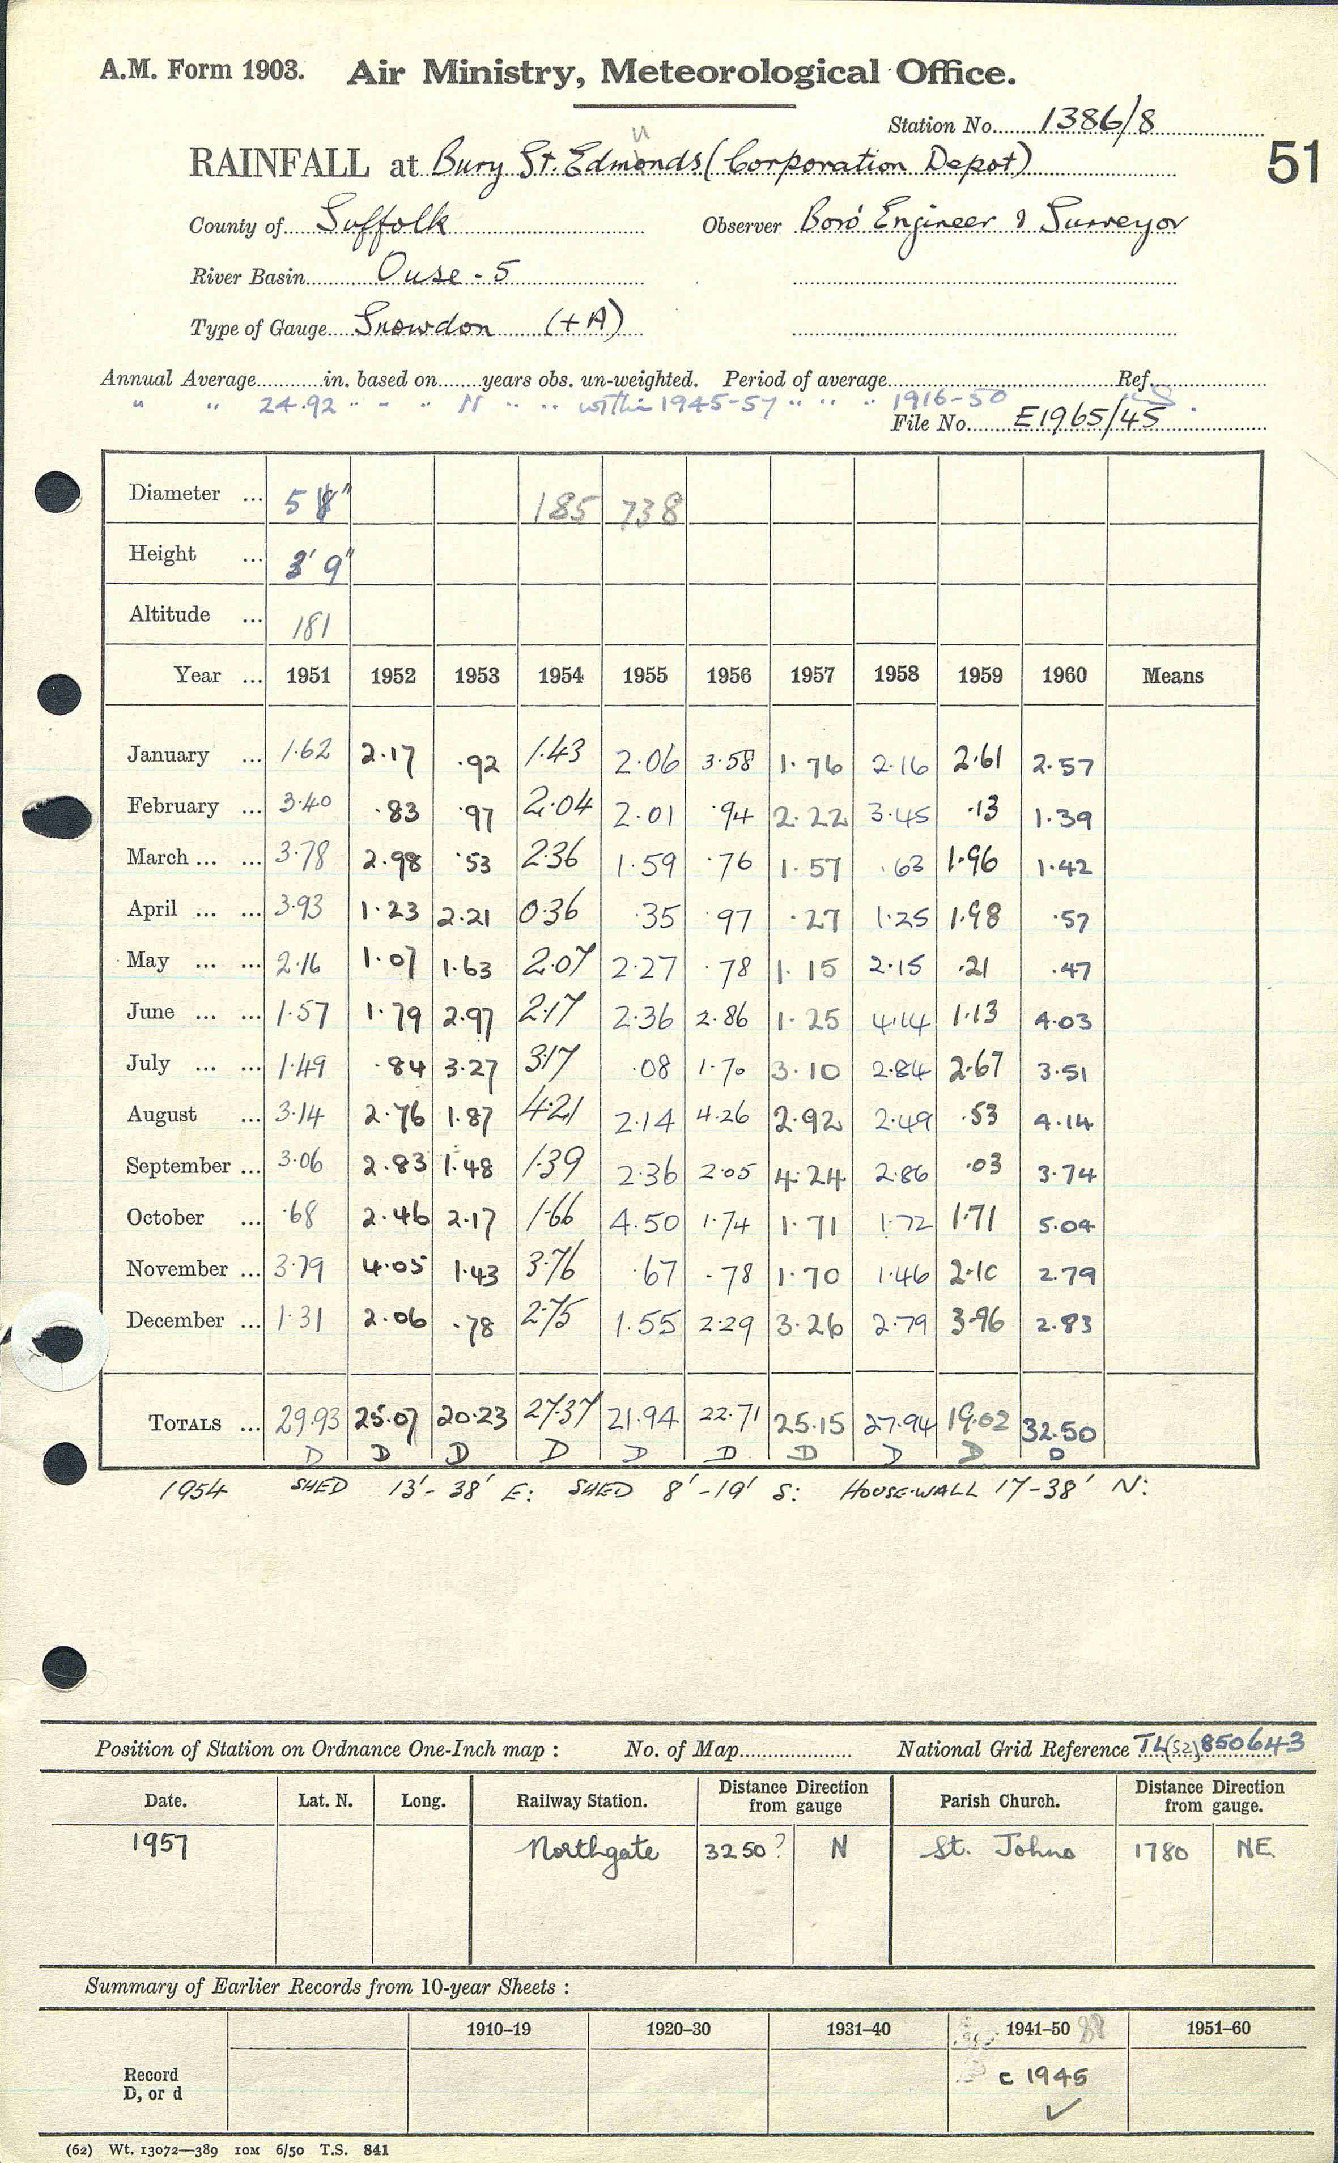 A.M. Form 1903. Air Ministry, Meteorological Office.
Station No. 1386/8
RAINFALL at Bury St. Edmonds (Corporation Depot)
u
51
County of Suffolk Observer Boro' Engineer & Surveyor
River Basin Ouse - 5
Type of Gauge Snowdon (+A)
Annual Average in. based on years obs. un-weighted. Period of average Ref.
" " 24.92 " " " N " " within 1945-57 " " " 1916-50
File No. E1965/45
Diameter ... 5" 185 738
Height ... 3' 9"
Altitude ... 181
Year ... 1951 1952 1953 1954 1955 1956 1957 1958 1959 1960 Means
January ... 1.62 2.17 .92 1.43 2.06 3.58 1.76 2.16 2.61 2.57
February ... 3.40 .83 .97 2.04 2.01 .94 2.22 3.45 .13 1.39
March ... ... 3.78 2.98 .53 2.36 1.59 .76 1.57 .63 1.96 1.42
April ... ... 3.93 1.23 2.21 0.36 .35 .97 .27 1.25 1.98 .57
May ... ... 2.16 1.07 1.63 2.07 2.27 .78 1.15 2.15 .21 .47
June ... ... 1.57 1.79 2.97 2.17 2.36 2.86 1.25 4.14 1.13 4.03
July ... ... 1.49 .84 3.27 3.17 .08 1.70 3.10 2.84 2.67 3.51
August ... 3.14 2.76 1.87 4.21 2.14 4.26 2.92 2.49 .53 4.14
September ... 3.06 2.83 1.48 1.39 2.36 2.05 4.24 2.86 .03 3.74
October ... .68 2.46 2.17 1.66 4.50 1.74 1.71 1.72 1.71 5.04
November ... 3.79 4.05 1.43 3.76 .67 .78 1.70 1.46 2.10 2.79
December ... 1.31 2.06 .78 2.75 1.55 2.29 3.26 2.79 3.96 2.83
TOTALS ... 29.93 25.07 20.23 27.37 21.94 22.71 25.15 27.94 19.02 32.50
D D D D D D D D D D
1954 SHED 13'-38' E: SHED 8'-19' S: HOUSE-WALL 17-38' N:
Position of Station on Ordnance One-Inch map : No. of Map National Grid Reference TL(52)850643
Date. Lat. N. Long. Railway Station. Distance Direction from gauge Parish Church. Distance Direction from gauge.
1957 Northgate 3250? N St. Johns 1780 NE
Summary of Earlier Records from 10-year Sheets :
1910–19 1920–30 1931–40 1941–50 1951–60
Record D, or d c 1945 ✓
(62) Wt. 13072—389 10M 6/50 T.S. 841